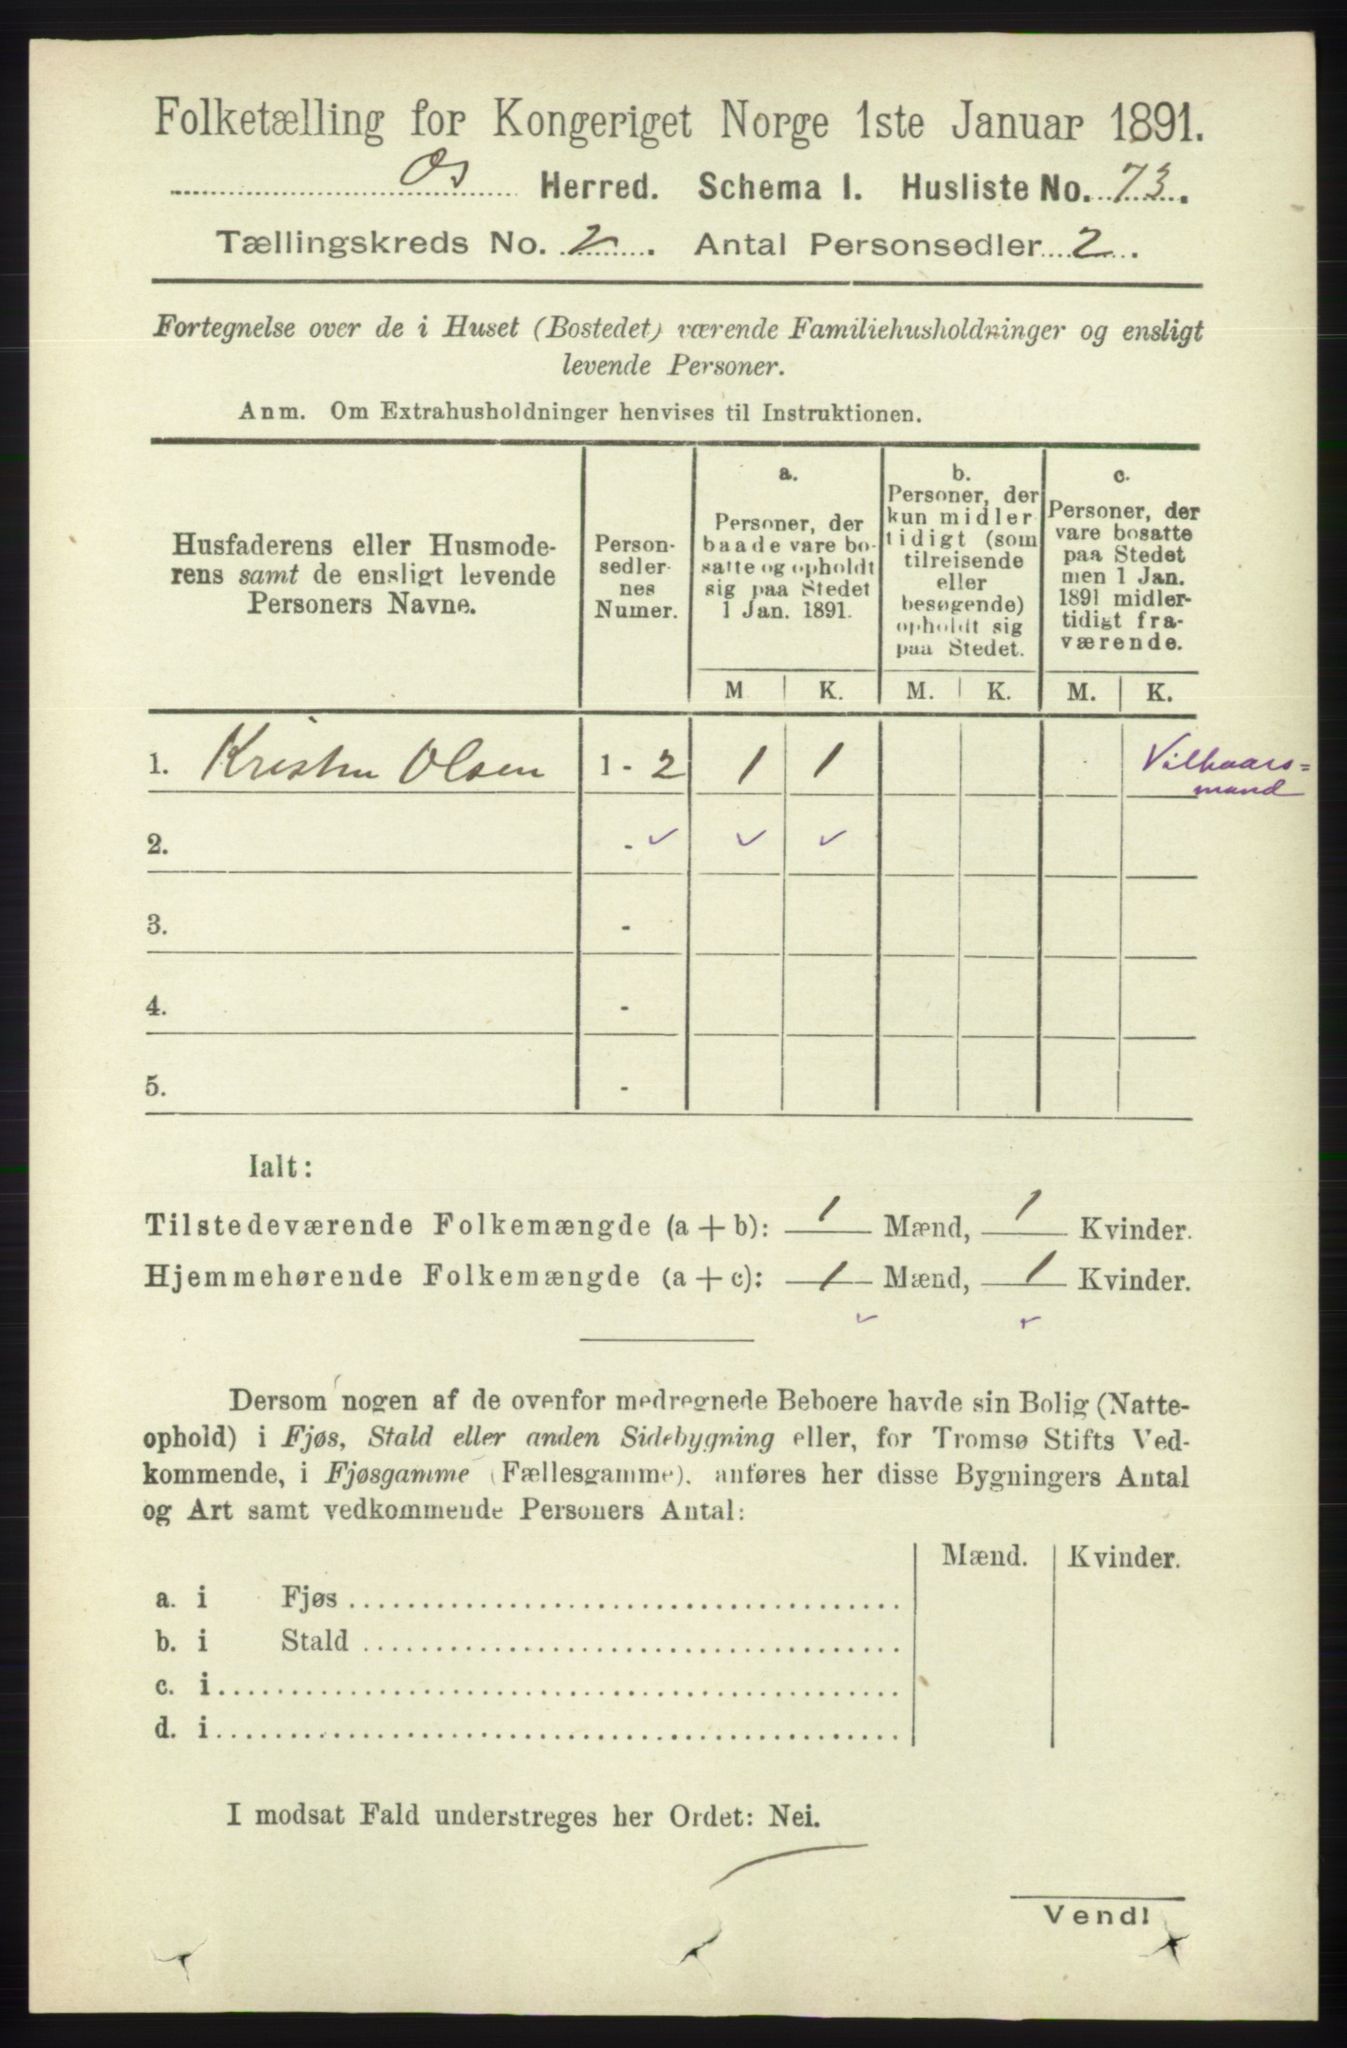 Folketælling for Kongeriget Norge 1ste Januar 1891.
Os Herred. Schema I. Husliste No. 73.
Tællingskreds No. 2. Antal Personsedler 2.
Fortegnelse over de i Huset (Bostedet) værende Familiehusholdninger og ensligt
levende Personer.
Anm. Om Extrahusholdninger henvises til Instruktionen.
Husfaderens eller Husmode-
rens samt de ensligt levende
Personers Navne.
Person-
sedler-
nes
Numer.
a.
Personer, der
baade vare bo-
satte og opholdt
sig paa Stedet
1 Jan. 1891.
b.
Personer, der
kun midler
tidigt (som
tilreisende
eller
besøgende)
opholdt sig
paa Stedet.
c.
Personer, der
vare bosatte
paa Stedet
men 1 Jan.
1891 midler-
tidigt fra-
værende.
M K. M. K. M. K.
1. Kristen Olsen 1 - 2 1 1 Vilkaars=
mand
2. - ✓ ✓ ✓
3. -
4. -
5. -
Ialt:
Tilstedeværende Folkemængde (a + b): 1 Mænd, 1 Kvinder.
Hjemmehørende Folkemængde (a + c): 1 Mænd, 1 Kvinder.
✓ ✓
Dersom nogen af de ovenfor medregnede Beboere havde sin Bolig (Natte-
ophold) i Fjøs, Stald eller anden Sidebygning eller, for Tromsø Stifts Ved-
kommende, i Fjøsgamme (Fællesgamme), anføres her disse Bygningers Antal
og Art samt vedkommende Personers Antal:
Mænd. Kvinder.
a. i Fjøs
b. i Stald
c. i
d. i
I modsat Fald understreges her Ordet: Nei.
Vend!